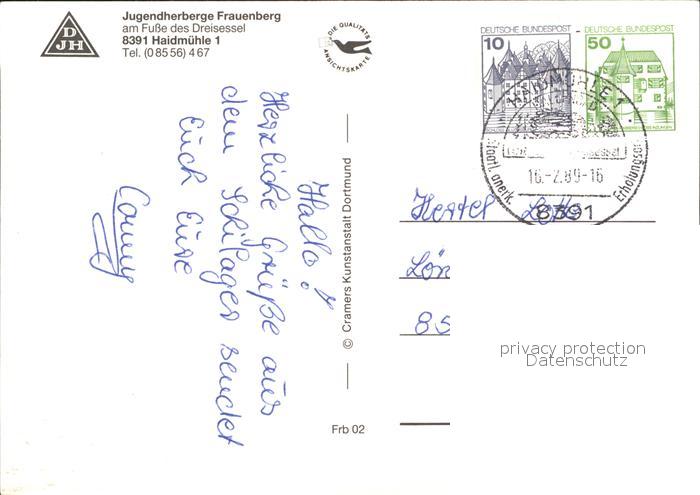 DJH
Jugendherberge Frauenberg
am Fuße des Dreisessel
8391 Haidmühle 1
Tel. (0 85 56) 4 67
DIE QUALITÄTS
ANSICHTSKARTE
10
DEUTSCHE BUNDESPOST
50
DEUTSCHE BUNDESPOST
HAIDMÜHLE 1
Staatl. anerk. Erholungsort
16.-2.89-16
8391
Hallo!
Herzliche Grüße aus
dem Schilager sendet
Euch Eure
Conny
© Cramers Kunstanstalt Dortmund
Frb 02
Hertel
Lön
85
privacy protection
Datenschutz